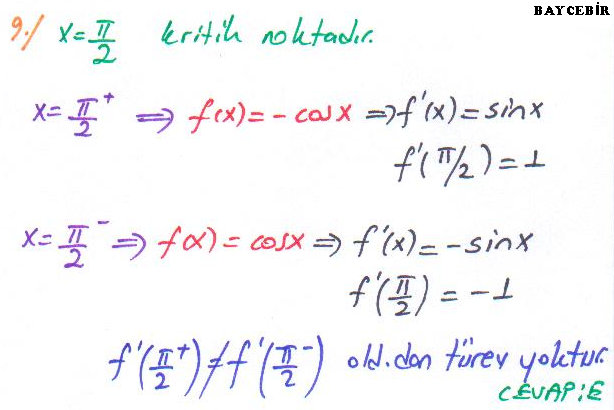 BAYCEBİR
9./ x=π/2 kritik noktadır.
x=π/2⁺ ⇒ f(x)=-cosx ⇒ f'(x)=sinx
f'(π/2)=1
x=π/2⁻ ⇒ f(x)=cosx ⇒ f'(x)=-sinx
f'(π/2)=-1
f'(π/2⁺)≠f'(π/2⁻) old.dan türev yoktur.
CEVAP:E